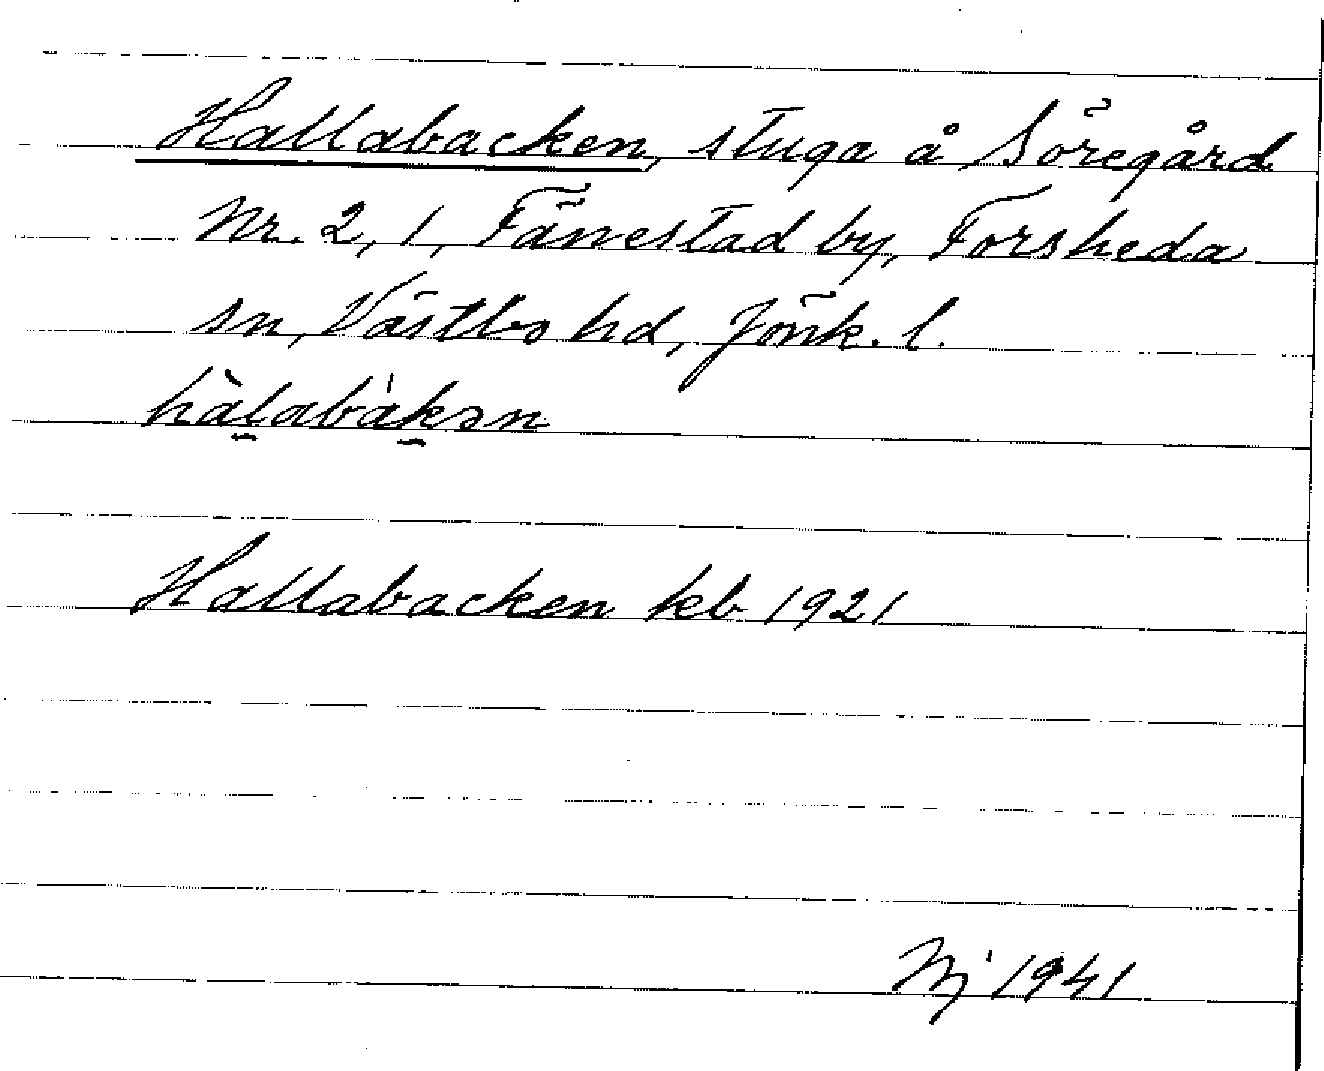 Hallabacken, stuga å Söregård
Nr. 2, 1, Fänestad by, Forsheda
sn, Västbo hd, Jönk. l.
hàl̠abàk̠ən
Hallabacken kb 1921
1941